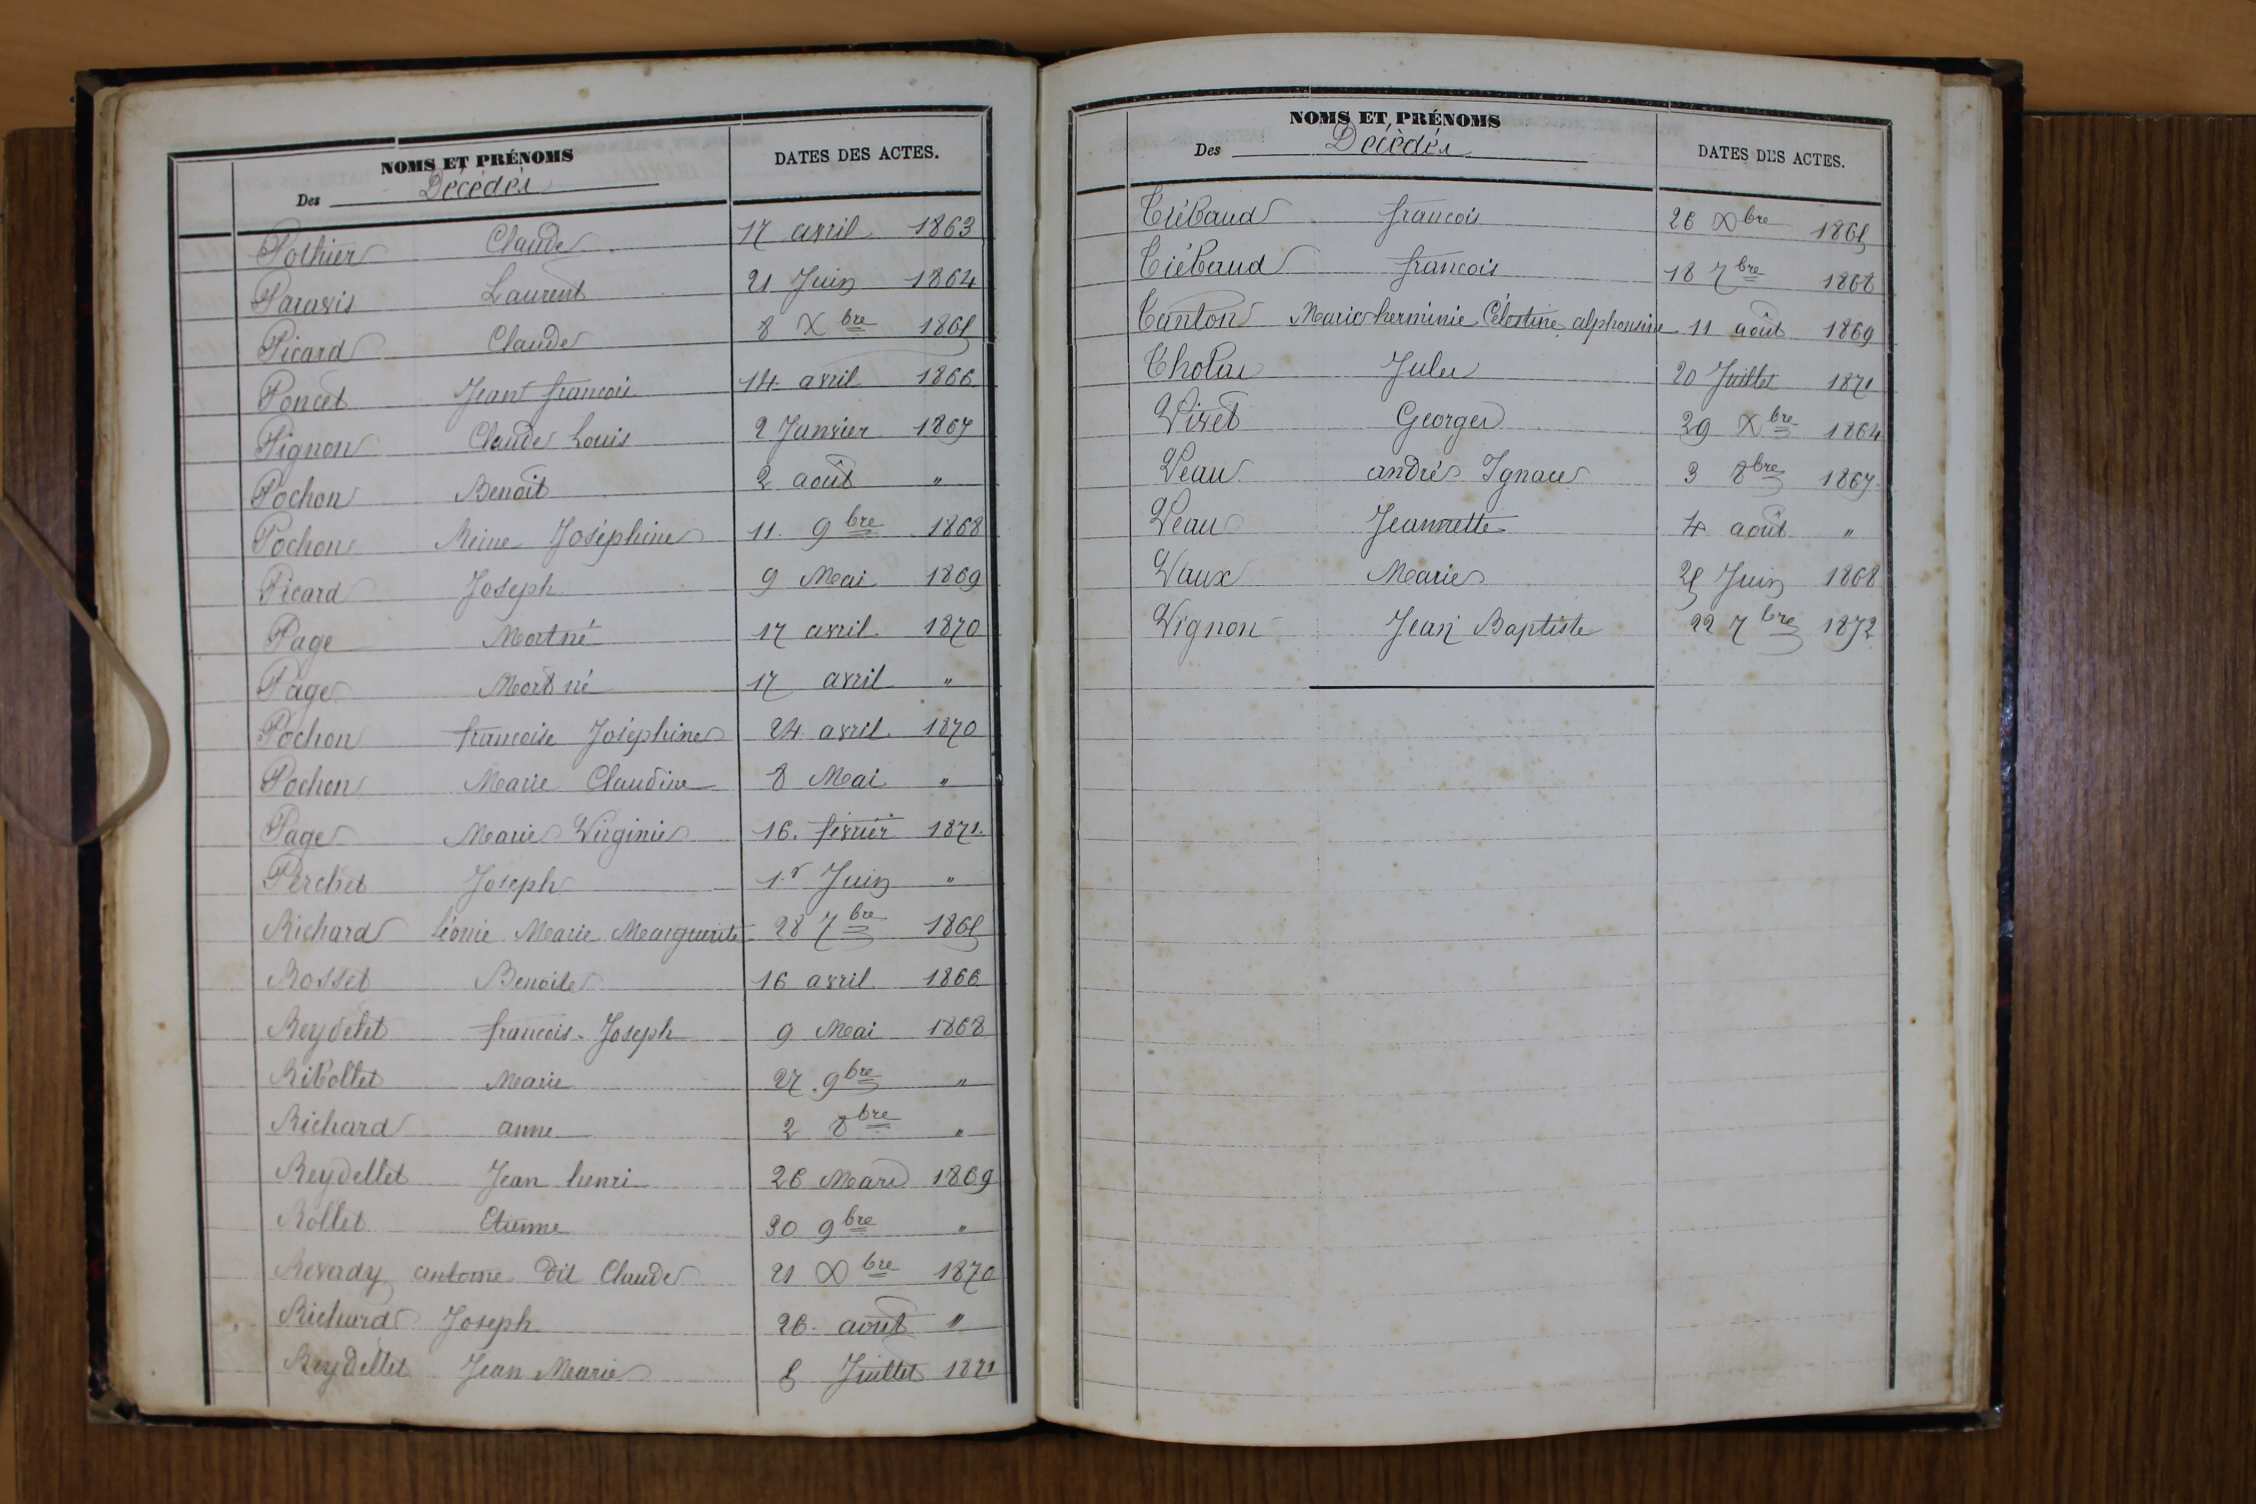 NOMS ET PRÉNOMS
Des Décédés
DATES DES ACTES.
Pothier Claude 17 avril 1863
Paravis Laurent 21 Juin 1864
Picard Claude 8 Xbre 1865
Poncet Jean françois 14 avril 1866
Pignon Claude Louis 2 Janvier 1867
Pochon Benoît 2 août "
Pochon Reine Joséphine 11 9bre 1868
Picard Joseph 9 Mai 1869
Page Mort né 17 avril 1870
Page Mort né 17 avril "
Pochon francoise Joséphine 24 avril 1870
Pochon Marie Claudine 8 Mai "
Page Marie Virginie 16. février 1871.
Perchet Joseph 1.r Juin "
Richard léonie Marie Marguerite 28 7bre 1865
Rosset Benoite 16 avril 1866
Reydelet francois-Joseph 9 Mai 1868
Ribollet Marie 27 9bre "
Richard anne 2 8bre "
Reydellet Jean henri 26 Mars 1869
Rollet Etienne 30 9bre "
Revady antoine dit Claude 21 Xbre 1870
Richard Joseph 26. août "
Reydellet Jean Marie 5 Juillet 1871
NOMS ET PRÉNOMS
Des Décédés
DATES DES ACTES.
Tiébaud francois 26 Xbre 1865
Tiébaud francois 18 7bre 1868
Tanton Marie herminie Célestine alphonsine 11 août 1869
Jules 20 Juillet 1871
Viret Georges 29 Xbre 1864
Veau andré Ignace 3 8bre 1867
Veau Jeannette 4 août "
Vaux Marie 25 Juin 1868
Vignon Jean Baptiste 22 7bre 1872